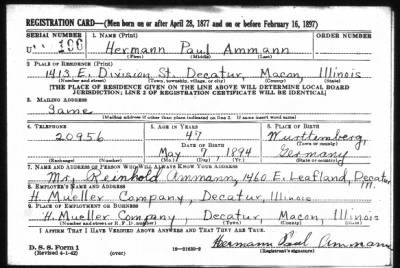 REGISTRATION CARD—(Men born on or after April 28, 1877 and on or before February 16, 1897)
SERIAL NUMBER 1. NAME (Print) ORDER NUMBER
U 186 Hermann Paul Ammann
(First) (Middle) (Last)
2. PLACE OF RESIDENCE (Print)
1413 E. Division St. Decatur, Macon, Illinois
(Number and street) (Town, township, village, or city) (County) (State)
[THE PLACE OF RESIDENCE GIVEN ON THE LINE ABOVE WILL DETERMINE LOCAL BOARD
JURISDICTION; LINE 2 OF REGISTRATION CERTIFICATE WILL BE IDENTICAL]
3. MAILING ADDRESS
Same
(Mailing address if other than place indicated on line 2. If same insert word same)
4. TELEPHONE 5. AGE IN YEARS 6. PLACE OF BIRTH
20956 47 Wurttemberg,
DATE OF BIRTH (Town or county)
May 7 1894 Germany
(Exchange) (Number) (Mo.) (Day) (Yr.) (State or country)
7. NAME AND ADDRESS OF PERSON WHO WILL ALWAYS KNOW YOUR ADDRESS
Mr. Reinhold Ammann, 1460 E. Leafland, Decatur, Ill.
8. EMPLOYER'S NAME AND ADDRESS
H. Mueller Company, Decatur, Illinois
9. PLACE OF EMPLOYMENT OR BUSINESS
H. Mueller Company, Decatur, Macon, Illinois
(Number and street or R. F. D. number) (Town) (County) (State)
I AFFIRM THAT I HAVE VERIFIED ABOVE ANSWERS AND THAT THEY ARE TRUE.
Hermann Paul Ammann
D. S. S. Form 1 16—21630-2 (Registrant's signature)
(Revised 4-1-42) (over)